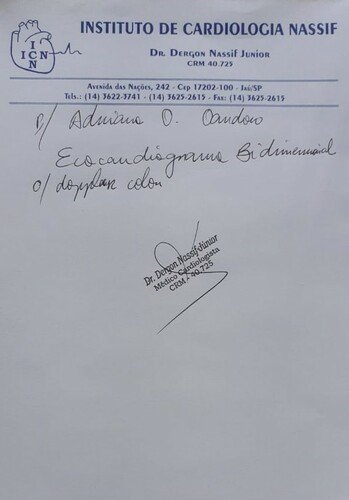 ICN
I
N
INSTITUTO DE CARDIOLOGIA NASSIF
DR. DERGON NASSIF JUNIOR
CRM 40.725
AVENIDA DAS NAÇÕES, 242 - CEP 17202-100 - JAÚ/SP
TELS.: (14) 3622-3741 - (14) 3625-2615 - FAX: (14) 3625-2615
p/ Adriana D.
Ecocardiograma Bidimensional
c/ doppler color
Dr. Dergon Nassif Júnior
Médico Cardiologista
CRM - 40.725